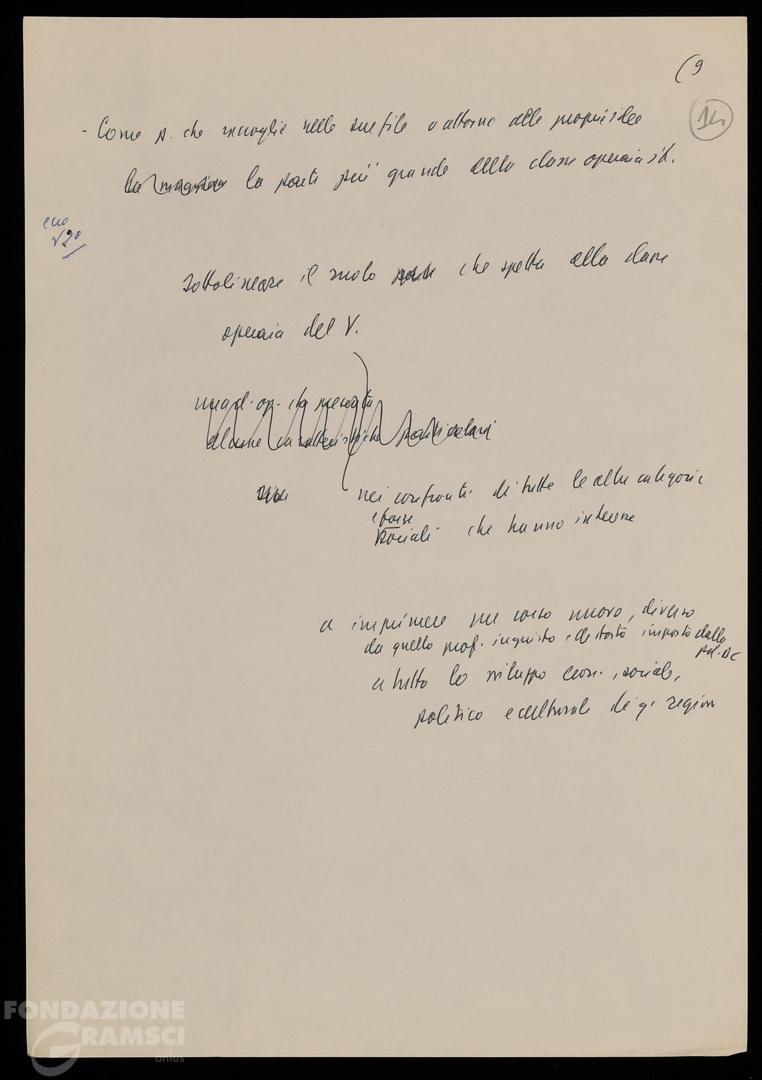 (9
14
- Come p. che raccoglie nelle sue file o attorno alle proprie idee
la maggior la parte più grande della classe operaia it.
Sottolineare il ruolo che spetta alla classe
operaia del V.
una cl. op. che presenta
alcune caratteristiche particolari
nei confronti di tutte le altre categorie
e forze
sociali che hanno interesse
a imprimere un corso nuovo, diverso
da quello prof. ingiusto e distorto imposto dalla
pol. DC
a tutto lo sviluppo econ., sociale,
politico e culturale di q. regione
FONDAZIONE
GRAMSCI
onlus